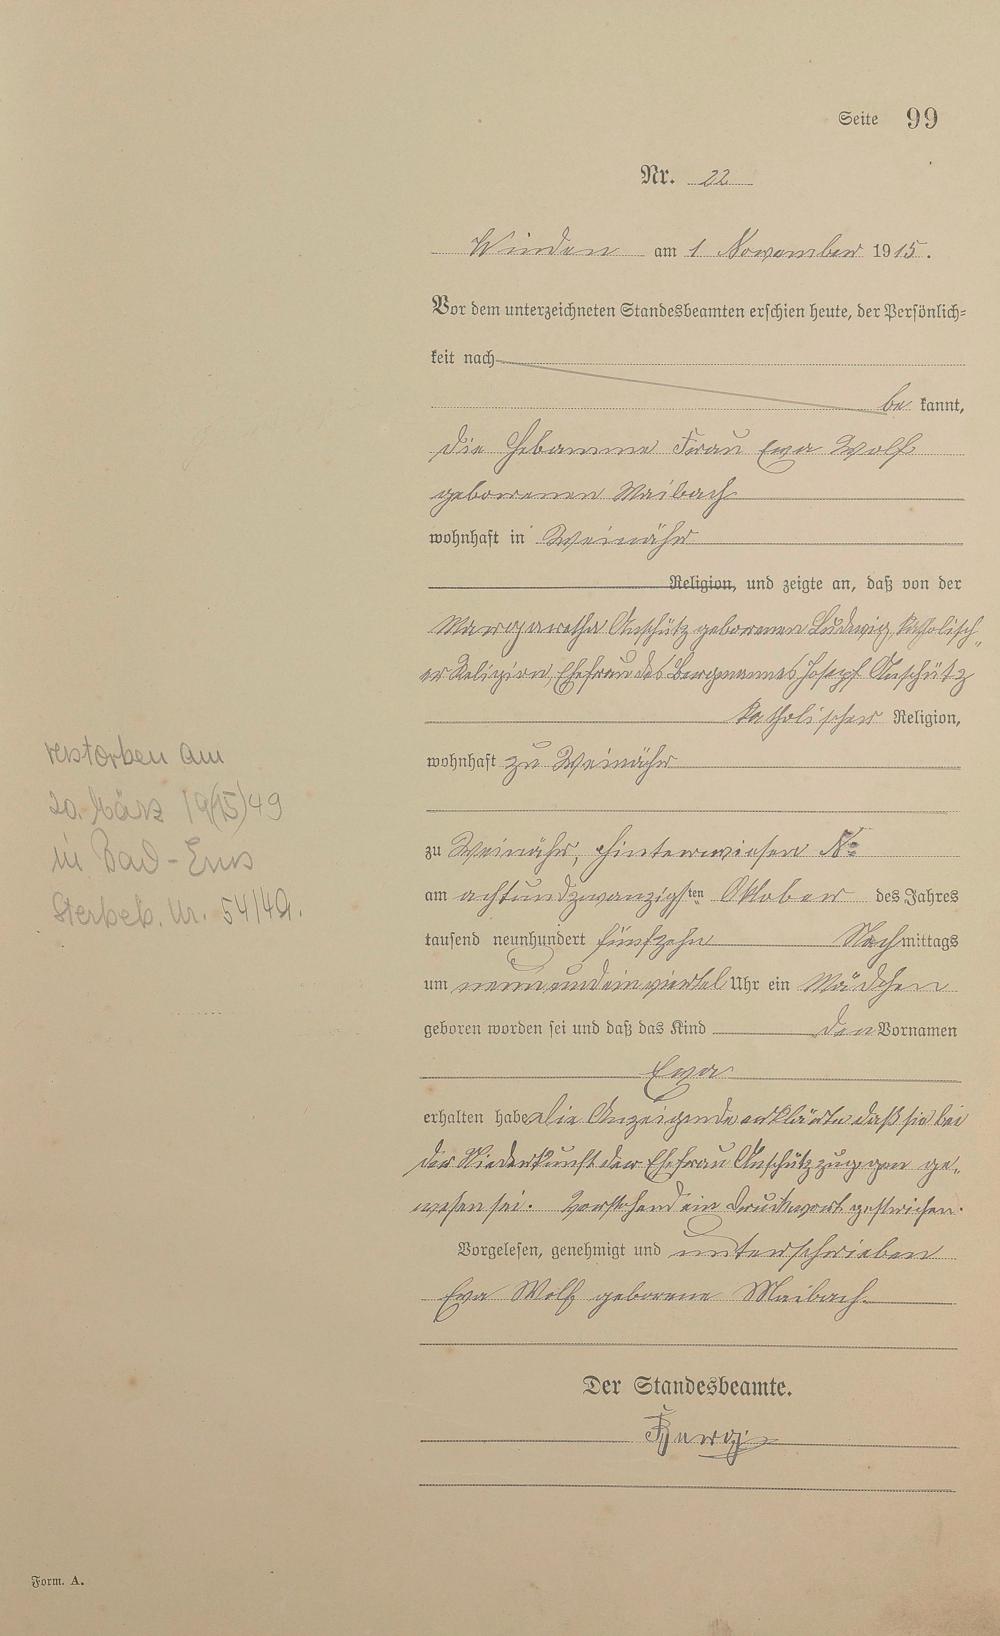 Seite 99
Nr. 22
Winden am 1 November 1915.
Vor dem unterzeichneten Standesbeamten erschien heute, der Persönlich=
keit nach
be kannt,
die Hebamme Frau Eva Wolf
geborenen Maibach
wohnhaft in Weinähr
Religion, und zeigte an, daß von der
Margaretha Anschütz geborenen Ludwig, katholisch„
er Religion, Ehefrau des Bergmannes Josepf Anschütz
katholischer Religion,
wohnhaft zu Weinähr
zu Weinähr, Hinterwiesen No
am achtundzwanzigsten Oktober des Jahres
tausend neunhundert fünfzehn Nachmittags
um neunundeinviertel Uhr ein Mädchen
geboren worden sei und daß das Kind den Vornamen
Eva
erhalten habe. Die Anzeigende erklärte daß sie bei
der Niederkunft der Ehefrau Anschütz zugegen ge„
wesen sei. Vorstehend ein Druckwort gestrichen.
Vorgelesen, genehmigt und unterschrieben
Eva Wolf geborene Maibach
Der Standesbeamte.
verstorben am
20. März 19(15)49
in Bad-Ems
Sterbeb. Nr. 54/49.
Form. A.